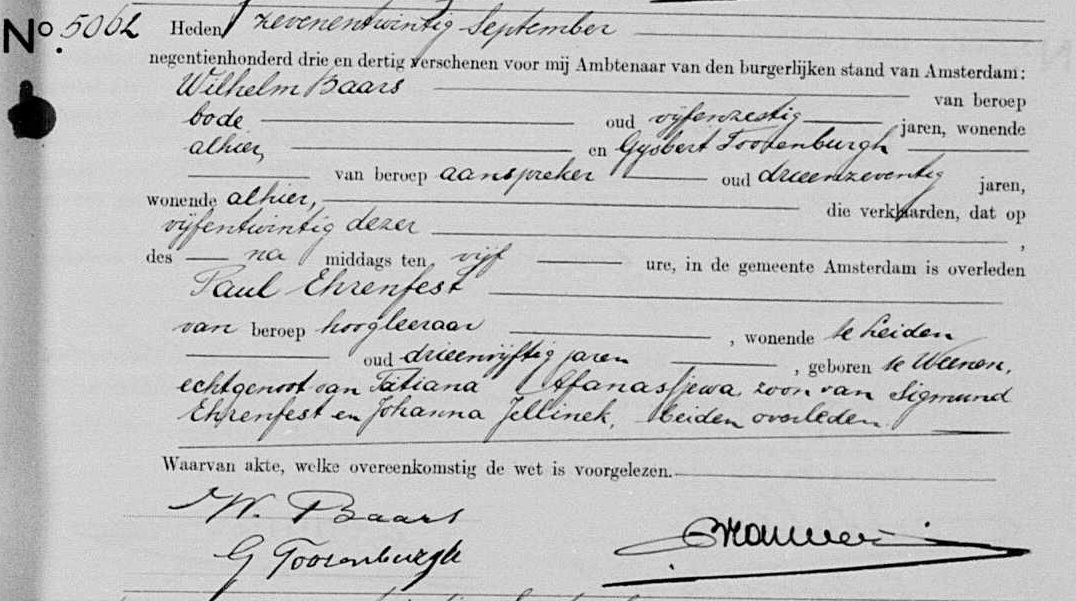 No. 5062 Heden zevenentwintig September
negentienhonderd drie en dertig verschenen voor mij Ambtenaar van den burgerlijken stand van Amsterdam:
Wilhelm Baars van beroep
bode oud vijfenzestig jaren, wonende
alhier, en Gysbert Toorenburgh
van beroep aanspreker oud drieenzeventig jaren,
wonende alhier, die verklaarden, dat op
vijfentwintig dezer ,
des na middags ten vijf ure, in de gemeente Amsterdam is overleden
Paul Ehrenfest
van beroep hoogleeraar , wonende te Leiden
oud drieenvijftig jaren , geboren te Weenen,
echtgenoot van Tatiana Afanassjewa, zoon van Sigmund
Ehrenfest en Johanna Jellinek, beiden overleden.
Waarvan akte, welke overeenkomstig de wet is voorgelezen.
W. Baars
G Toorenburgh